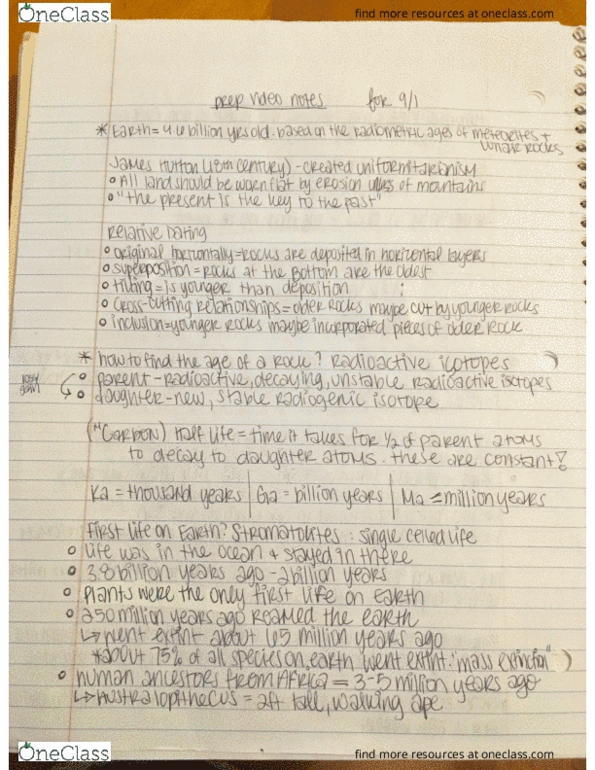 OneClass
find more resources at oneclass.com
prep video notes for 9/1
* Earth = 4.6 billion yrs old. based on the radiometric ages of meteorites +
lunar rocks
James Hutton (18th century) - created uniformitarianism
o All land should be worn flat by erosion of mountains
o "the present is the key to the past"
relative dating
o original horizontally = rocks are deposited in horizontal layers
o superposition = rocks at the bottom are the oldest
o tilting = is younger than deposition
o cross-cutting relationships = older rocks maybe cut by younger rocks
o inclusion = younger rocks maybe incorporated pieces of older rock
* how to find the age of a rock? Radioactive icotopes
o parent - radioactive, decaying, unstable radioactive isotopes
o daughter - new, stable radiogenic isotope
(¹⁴Carbon) Half life = time it takes for 1/2 of parent atoms
to decay to daughter atoms. these are constant!
Ka = thousand years | Ga = billion years | Ma = million years
First life on Earth? Stromatolites : single celled life
o life was in the ocean + stayed in there
o 3.8 billion years ago - 2 billion years
o plants were the only first life on earth
o 250 million years ago roamed the earth
↳ went extint about 65 million years ago
* about 75% of all species on earth went extint "mass extinction"
o human ancestors from Africa = 3-5 million years ago
↳ Australopithecus = 4ft tall, walking ape
OneClass
find more resources at oneclass.com